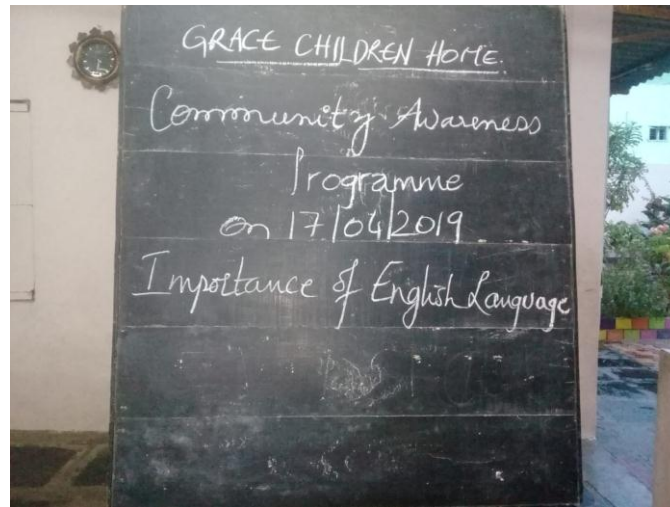 GRACE CHILDREN HOME.
Community Awareness
Programme
on 17/04/2019
Importance of English Language